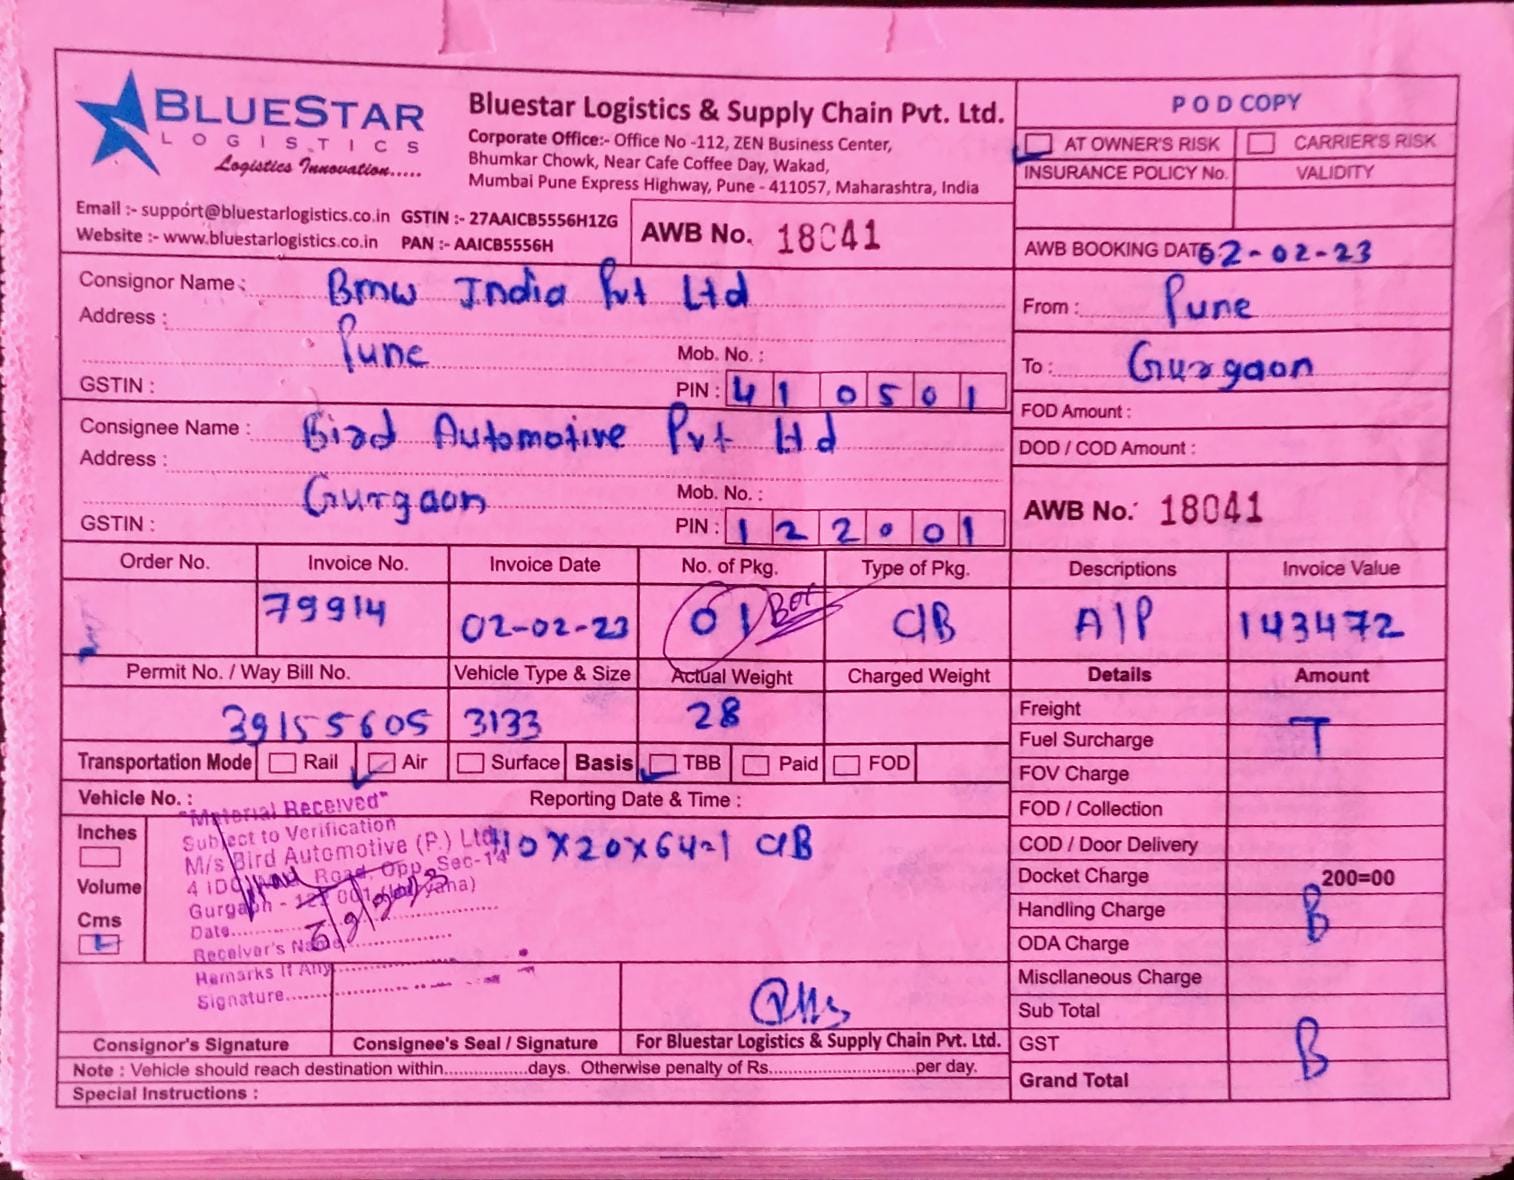 BLUESTAR
LOGISTICS
Logistics Innovation.....
Bluestar Logistics & Supply Chain Pvt. Ltd.
Corporate Office:- Office No -112, ZEN Business Center,
Bhumkar Chowk, Near Cafe Coffee Day, Wakad,
Mumbai Pune Express Highway, Pune - 411057, Maharashtra, India
Email :- support@bluestarlogistics.co.in GSTIN :- 27AAICB5556H1ZG
Website :- www.bluestarlogistics.co.in PAN :- AAICB5556H
AWB No. 18041
POD COPY
AT OWNER'S RISK CARRIER'S RISK
INSURANCE POLICY No. VALIDITY
AWB BOOKING DATE 02-02-23
Consignor Name : Bmw India Pvt Ltd
Address :
Pune
Mob. No. :
GSTIN : PIN : 410501
From : Pune
To : Gurgaon
FOD Amount :
DOD / COD Amount :
Consignee Name : Bird Automotive Pvt Ltd
Address :
Gurgaon
Mob. No. :
GSTIN : PIN : 122001
AWB No. 18041
Order No. Invoice No. Invoice Date No. of Pkg. Type of Pkg. Descriptions Invoice Value
79914 02-02-23 01 Box C/B A/P 143472
Permit No. / Way Bill No. Vehicle Type & Size Actual Weight Charged Weight Details Amount
39155605 3133 28
Freight
Fuel Surcharge T
Transportation Mode Rail Air Surface Basis TBB Paid FOD
FOV Charge
Vehicle No. : Reporting Date & Time :
FOD / Collection
Inches
Volume
Cms
"Material Received"
Subject to Verification
M/s Bird Automotive (P.) Ltd.
Road, Opp. Sec-14
Gurgaon - 122 001 (Haryana)
Date
Receiver's Name
Remarks If Any
Signature
110x20x64-1 C/B
COD / Door Delivery
Docket Charge 200=00
Handling Charge B
ODA Charge
Miscllaneous Charge
Sub Total
GST B
Grand Total
Consignor's Signature Consignee's Seal / Signature For Bluestar Logistics & Supply Chain Pvt. Ltd.
Note : Vehicle should reach destination within...............days. Otherwise penalty of Rs..........................per day.
Special Instructions :